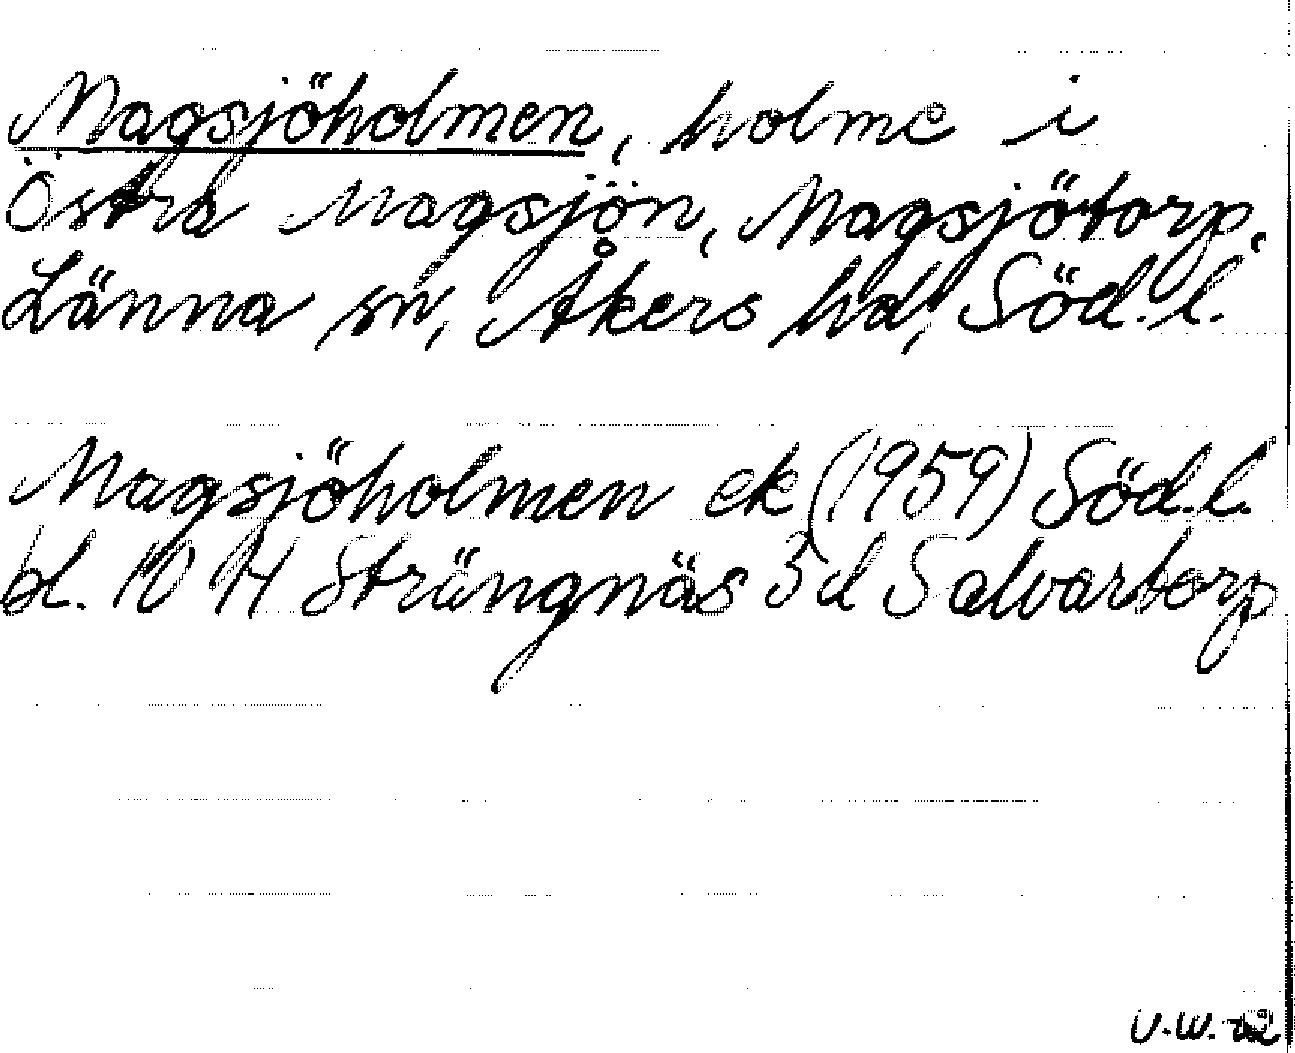 Magsjöholmen, holme i
Östra Magsjön, Magsjötorp,
Länna sn, Åkers hd, Söd.l.
Magsjöholmen ek (1959) Söd.l.
bl. 10 H Strängnäs 3 d Salvartorp
U.W.